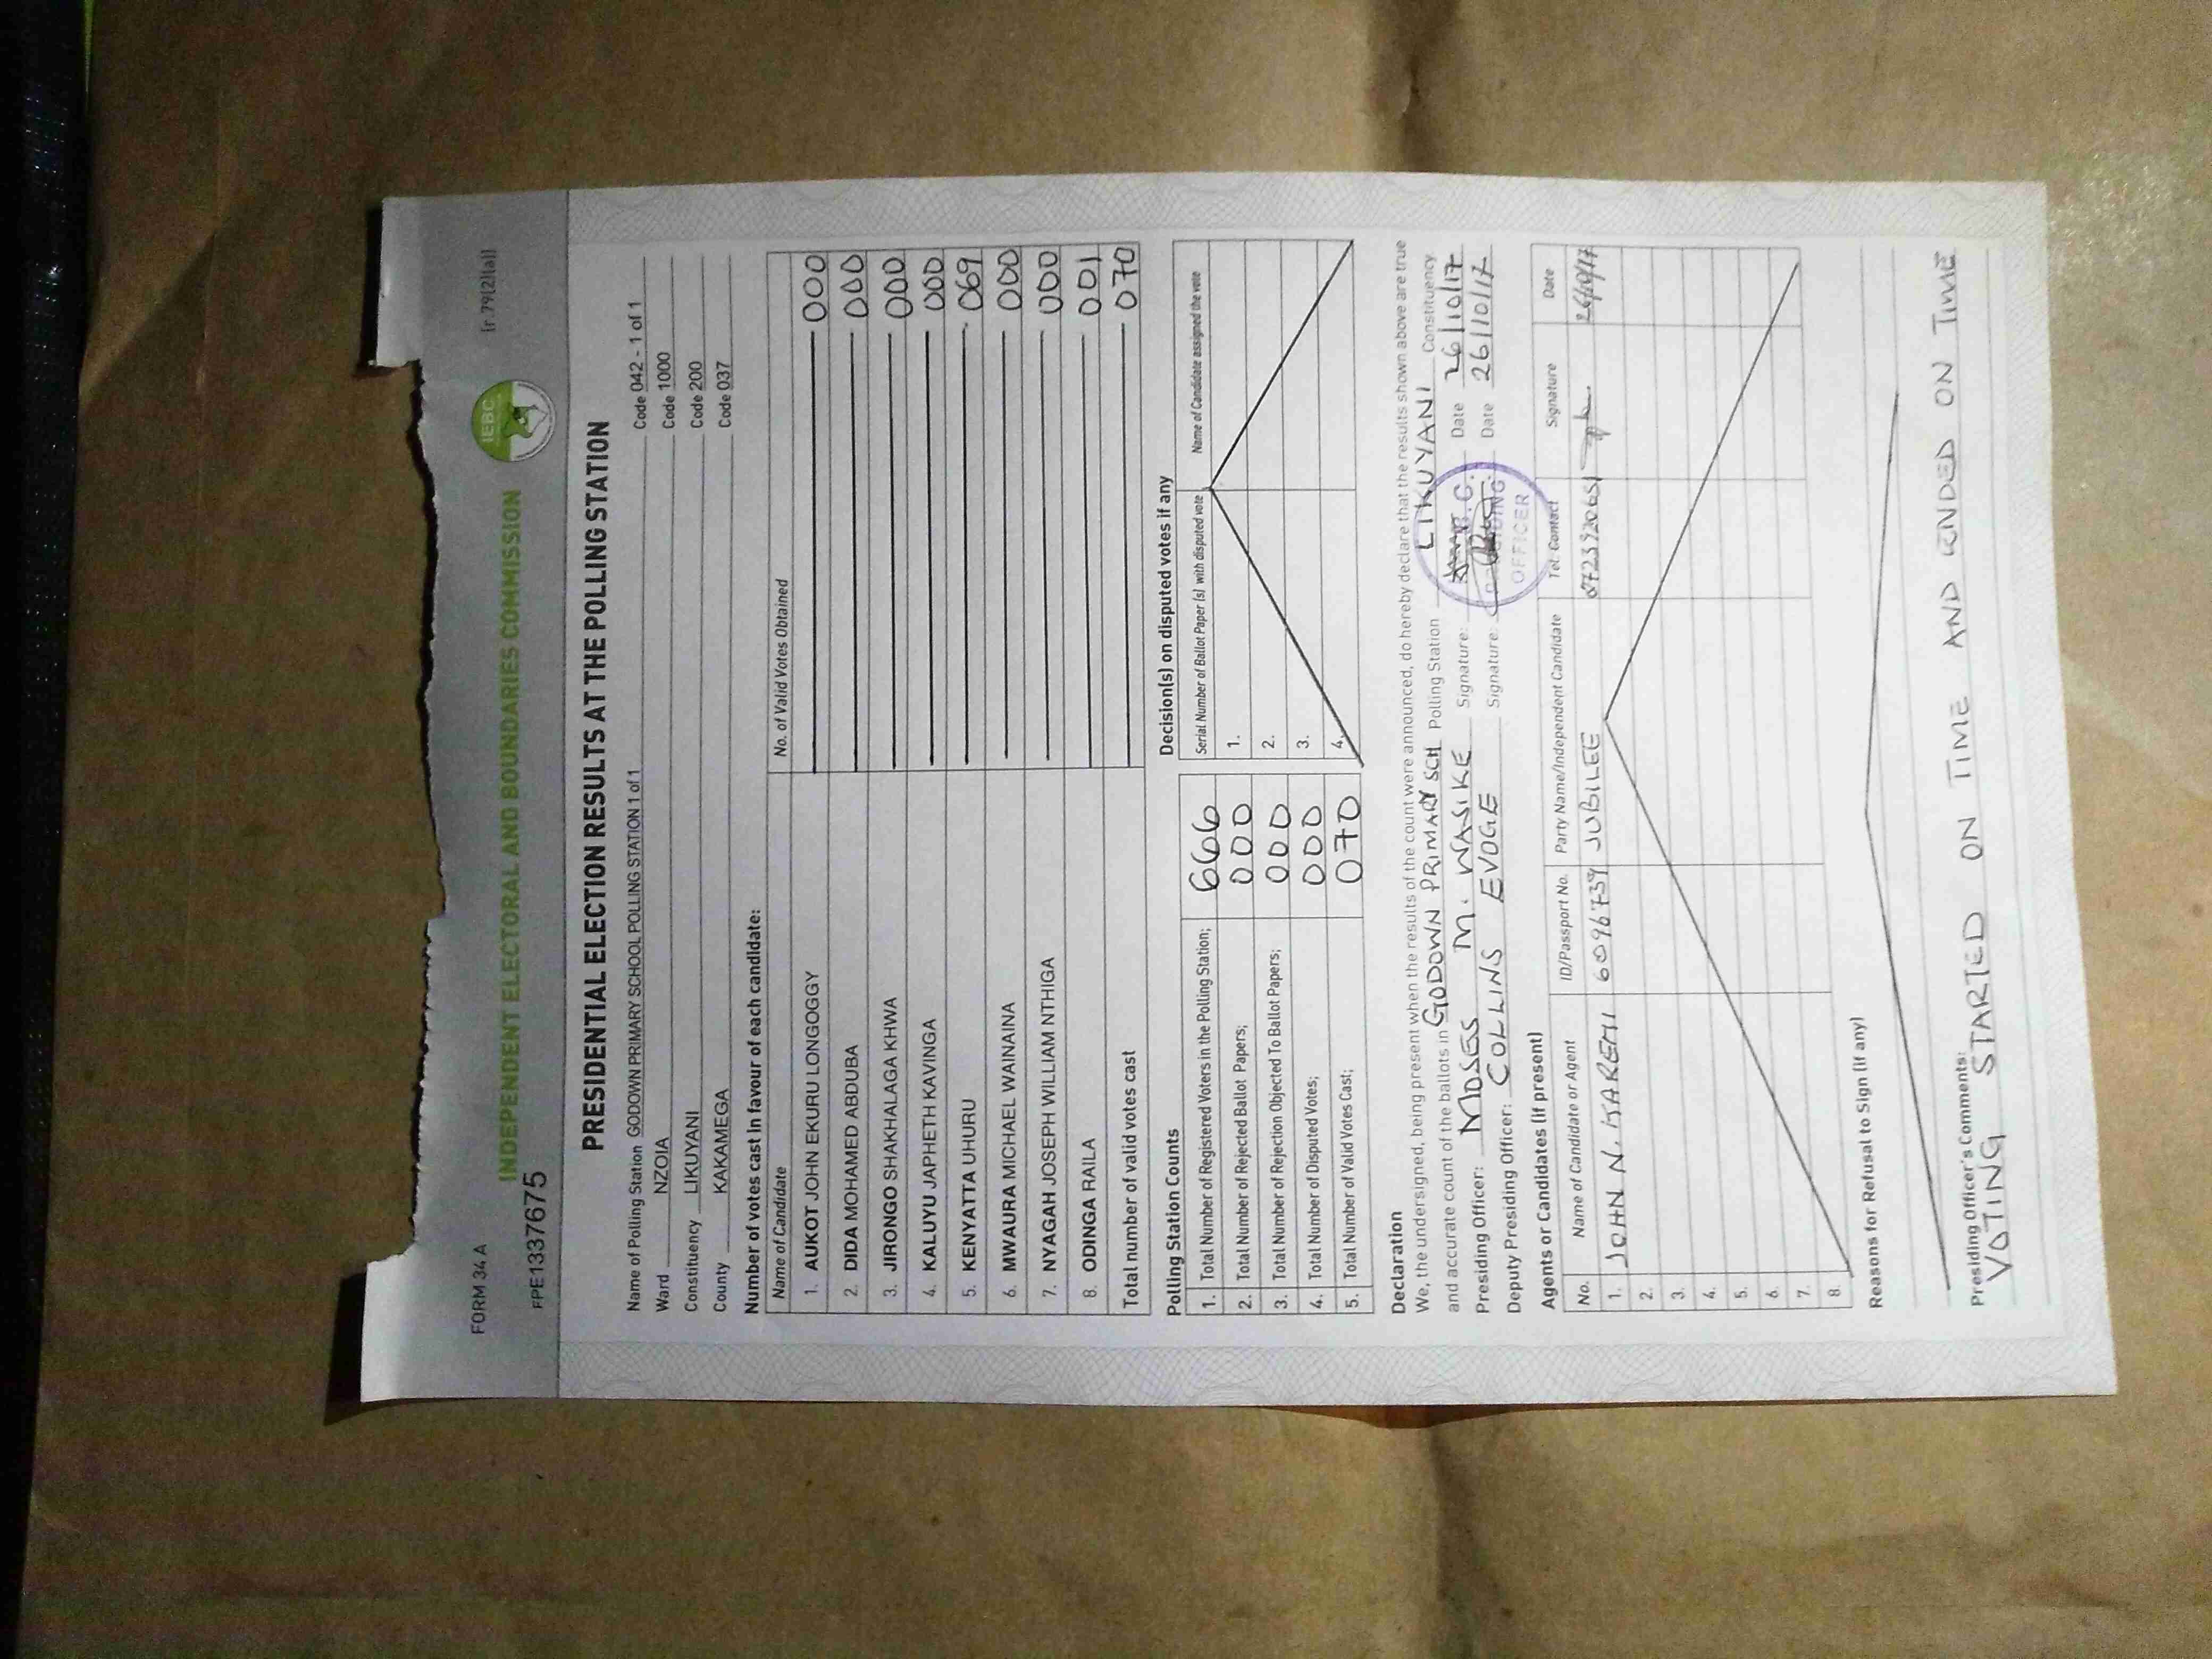 FORM 34 A
(r.79(2)(a))
IEBC
INDEPENDENT ELECTORAL AND BOUNDARIES COMMISSION
FPE1337675
PRESIDENTIAL ELECTION RESULTS AT THE POLLING STATION
Name of Polling Station GODOWN PRIMARY SCHOOL POLLING STATION 1 of 1 Code 042 - 1 of 1
Ward NZOIA Code 1000
Constituency LIKUYANI Code 200
County KAKAMEGA Code 037
Number of votes cast in favour of each candidate:
Name of Candidate No. of Valid Votes Obtained
1. AUKOT JOHN EKURU LONGOGGY 000
2. DIDA MOHAMED ABDUBA 000
3. JIRONGO SHAKHALAGA KHWA 000
4. KALUYU JAPHETH KAVINGA 000
5. KENYATTA UHURU 069
6. MWAURA MICHAEL WAINAINA 000
7. NYAGAH JOSEPH WILLIAM NTHIGA 000
8. ODINGA RAILA 001
Total number of valid votes cast 070
Polling Station Counts
1. Total Number of Registered Voters in the Polling Station; 666
2. Total Number of Rejected Ballot Papers; 000
3. Total Number of Rejection Objected To Ballot Papers; 000
4. Total Number of Disputed Votes; 000
5. Total Number of Valid Votes Cast; 070
Decision(s) on disputed votes if any
Serial Number of Ballot Paper (s) with disputed vote Name of Candidate assigned the vote
1.
2.
3.
4.
Declaration
We, the undersigned, being present when the results of the count were announced, do hereby declare that the results shown above are true
and accurate count of the ballots in GODOWN PRIMARY SCH Polling Station LIKUYANI Constituency
Presiding Officer: MOSES M. WASIKE Signature: Date 26/10/17
Deputy Presiding Officer: COLLINS EVOGE Signature: Date 26/10/17
OFFICER
Agents or Candidates (if present)
No. Name of Candidate or Agent ID/Passport No. Party Name/Independent Candidate Tel. Contact Signature Date
1. JOHN N. KAREMI 6096739 JUBILEE 0723920651 26/10/17
2.
3.
4.
5.
6.
7.
8.
Reasons for Refusal to Sign (if any)
Presiding Officer's Comments:
VOTING STARTED ON TIME AND ENDED ON TIME